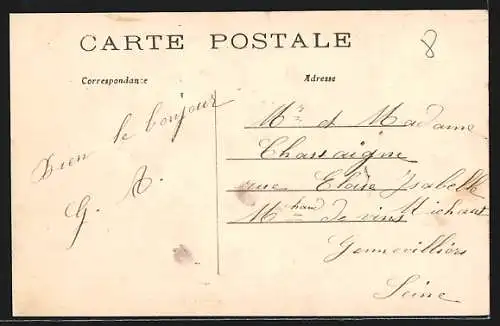 CARTE POSTALE
8
Correspondance
Adresse
Bien le bonjour
G. A.
Mr et Madame
Chassaigne
rue Eloïse Isabelle Michaud
Mchand de vins
Gennevilliers
Seine